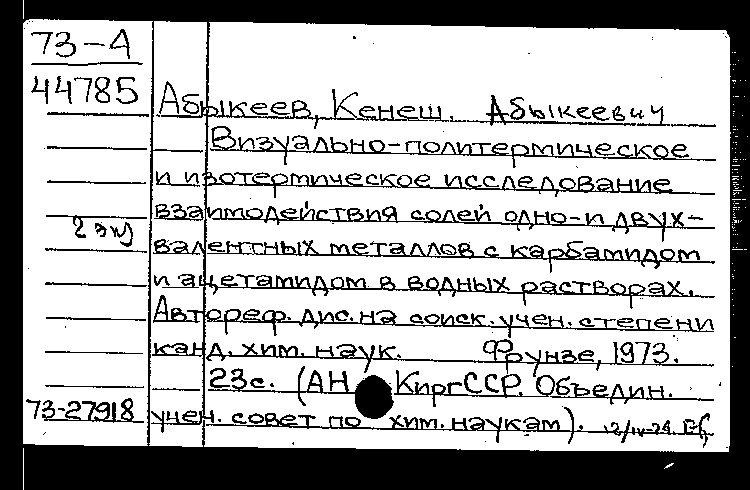 73-А
44785
Абыкеев, Кенеш. Абыкеевич
Визуально-политермическое
и изотермическое исследование
взаимодействия солей одно-и двух-
2 экз
валентных металлов с карбамидом
и ацетамидом в водных растворах.
Автореф. дис. на соиск. учен. степени
канд. хим. наук. Фрунзе, 1973.
23с. (АН КиргССР. Объедин.
73-27918 учен. совет по хим. наукам).